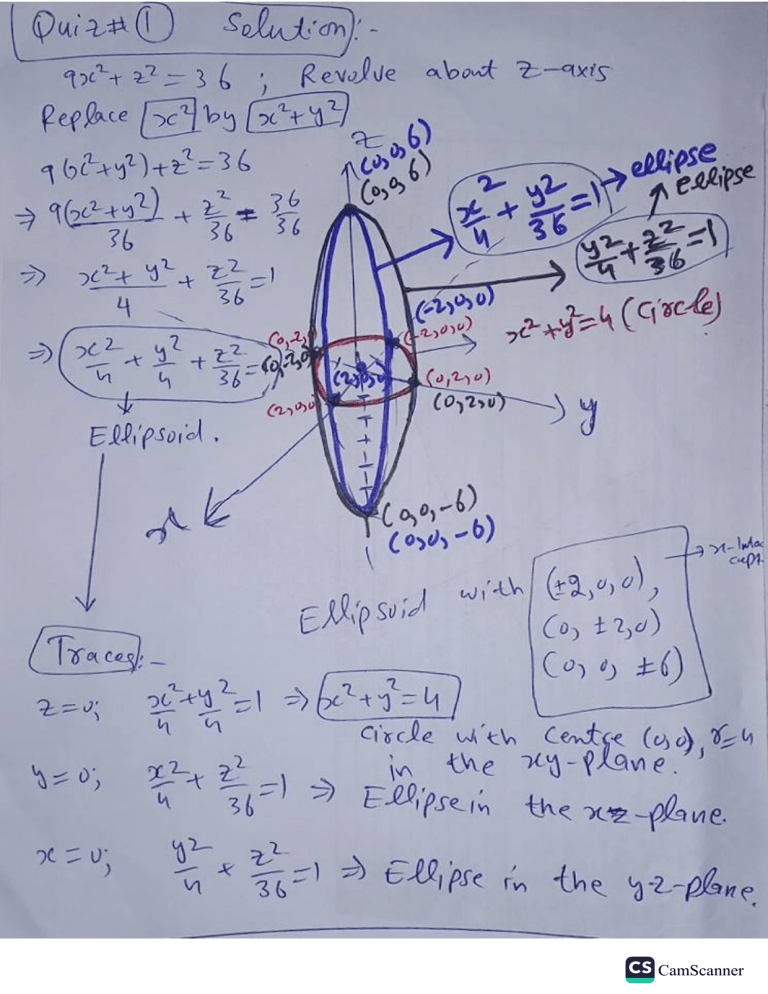 Quiz# ① Solution:-
9x²+z²=36 ; Revolve about z-axis
Replace x² by x²+y²
9(x²+y²)+z²=36
⇒ 9(x²+y²)/36 + z²/36 = 36/36
⇒ x²+y²/4 + z²/36 = 1
⇒ x²/4 + y²/4 + z²/36 = 1
Ellipsoid.
z
(0,0,6)
(0,0,6)
x²/4 + y²/36 = 1 → ellipse
Ellipse
y²/4 + z²/36 = 1
(-2,0,0)
(-2,0,0)
x²+y²=4 (Circle)
(0,-2,0)
(0,-2,0)
(2,0,0)
(2,0,0)
(0,2,0)
(0,2,0)
y
x
(0,0,-6)
(0,0,-6)
Ellipsoid with (±2,0,0),
(0, ±2,0)
(0, 0, ±6)
Traces:-
z=0; x²/4+y²/4=1 ⇒ x²+y²=4
circle with centre (0,0), r=4
in the xy-plane.
y=0; x²/4 + z²/36=1 ⇒ Ellipse in the xz-plane.
x=0; y²/4 + z²/36=1 ⇒ Ellipse in the yz-plane.
CS CamScanner